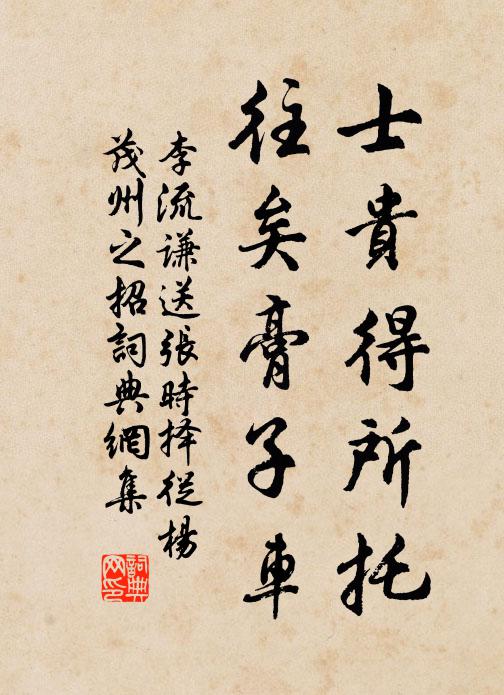 士貴得所托
往矣膏子車
李流謙送張時择從楊
茂州之招詞典網集
詞典网印